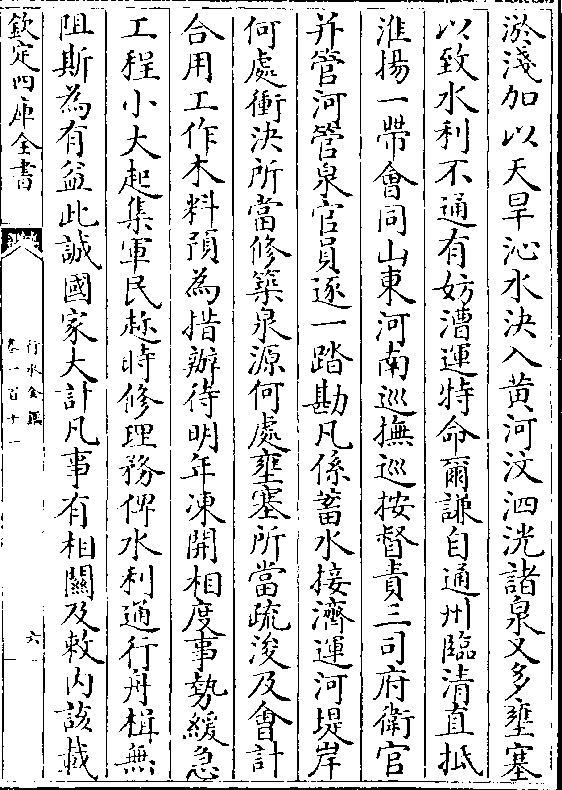 淤淺加以天旱沁水決入黄河汶泗洸諸泉又多壅塞
以致水利不通有妨漕運特命爾謙自通州臨清直抵
淮揚一帶會同山東河南巡撫巡按督責三司府衛官
并管河管泉官員逐一踏勘凡係蓄水接濟運河堤岸
何處衝決所當修築泉源何處壅塞所當疏浚及會計
合用工作木料預為措辦待明年凍開相度事勢緩急
工程小大起集軍民趂時修理務俾水利通行舟楫無
阻斯為有益此誠國家大計凡事有相關及敕内該載
欽定四庫全書
行水金鑑
卷一百十一
六